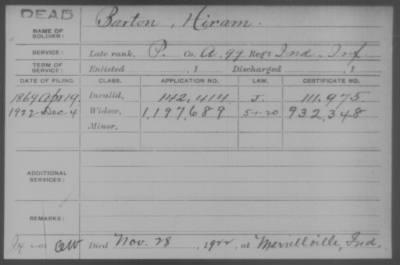 DEAD
NAME OF SOLDIER: Barton, Hiram.
SERVICE: Late rank, P. Co. A. 97 Reg't Ind. Inf
TERM OF SERVICE: Enlisted , 1 Discharged , 1
DATE OF FILING. CLASS. APPLICATION NO. LAW. CERTIFICATE NO.
1869 Apr 19. Invalid, 142,414 J. 111,975
1922 Dec 4 Widow, 1,197,689 5-1-20 932,348
Minor,
ADDITIONAL SERVICES:
REMARKS:
Died Nov. 28, 1922, at Merrillville, Ind.